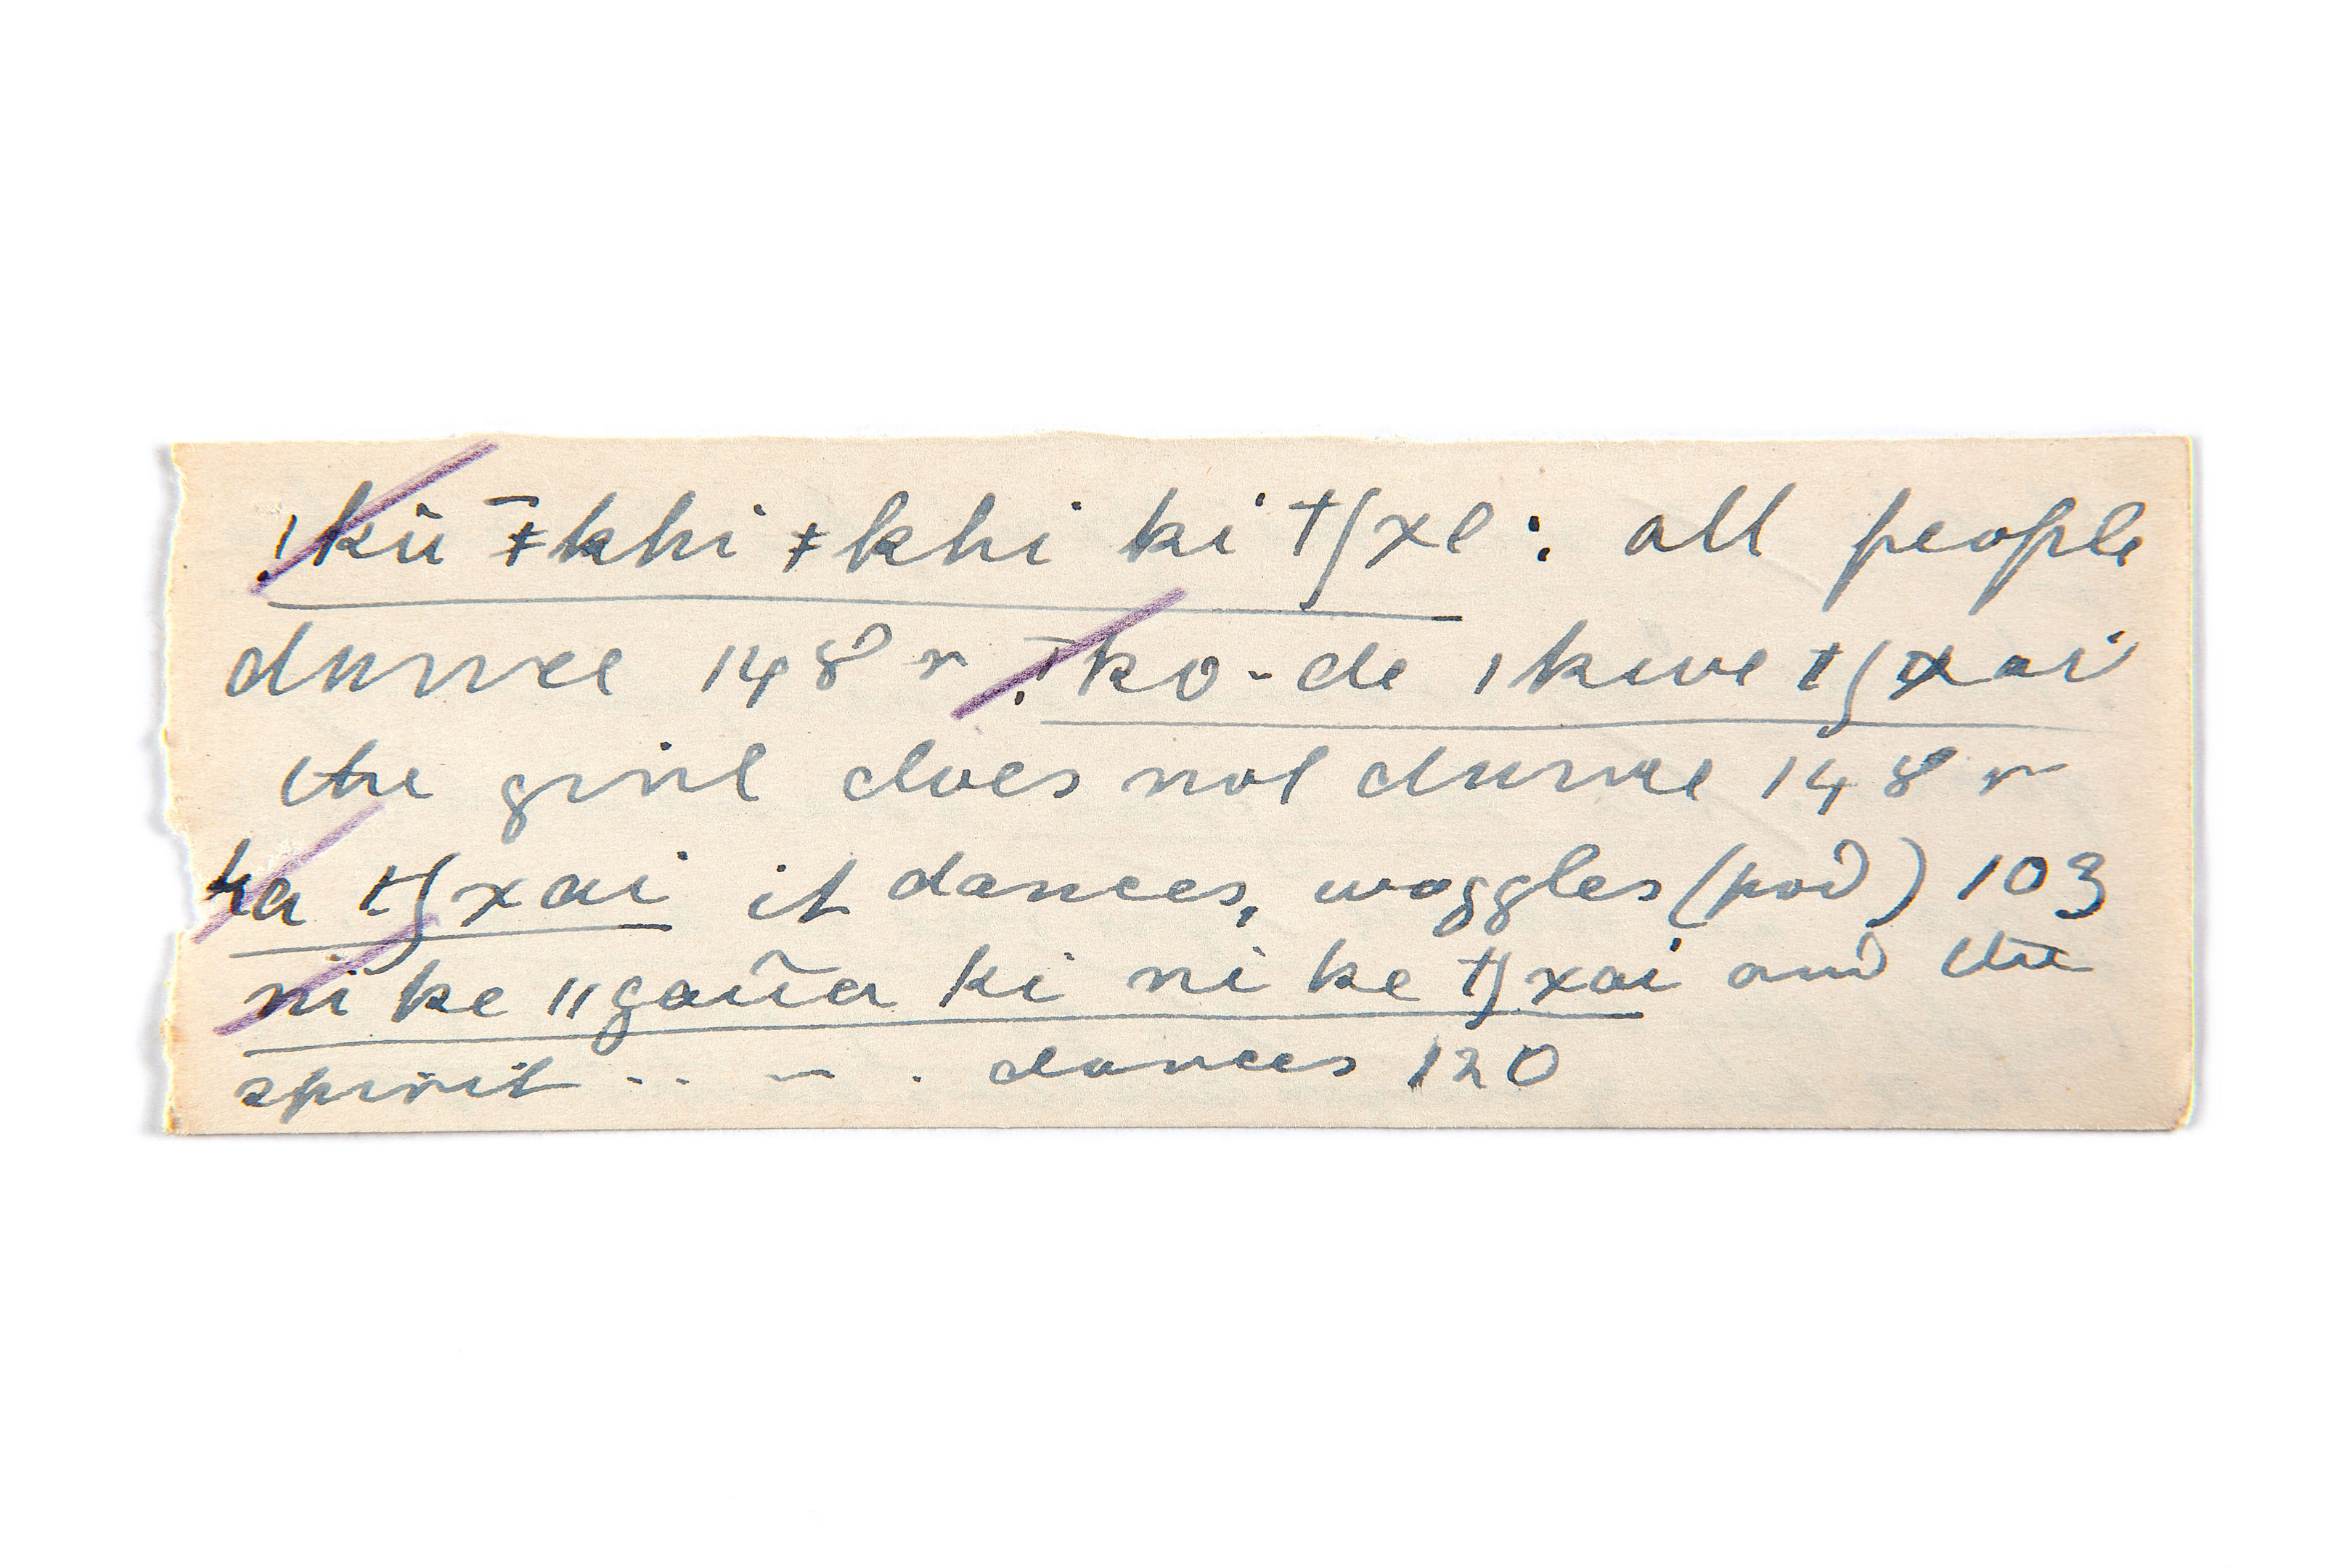 !kũ ǂ̄khi ǂkhi ki tʃxe: all people
dance 148 r !ko-de ǀkwe tʃxai
the girl does not dance 148 r
ha tʃxai it dances, waggles (pod) 103
ni ke ǁgauũa ki ni ke tʃxai and the
spirit . . – . dances 120